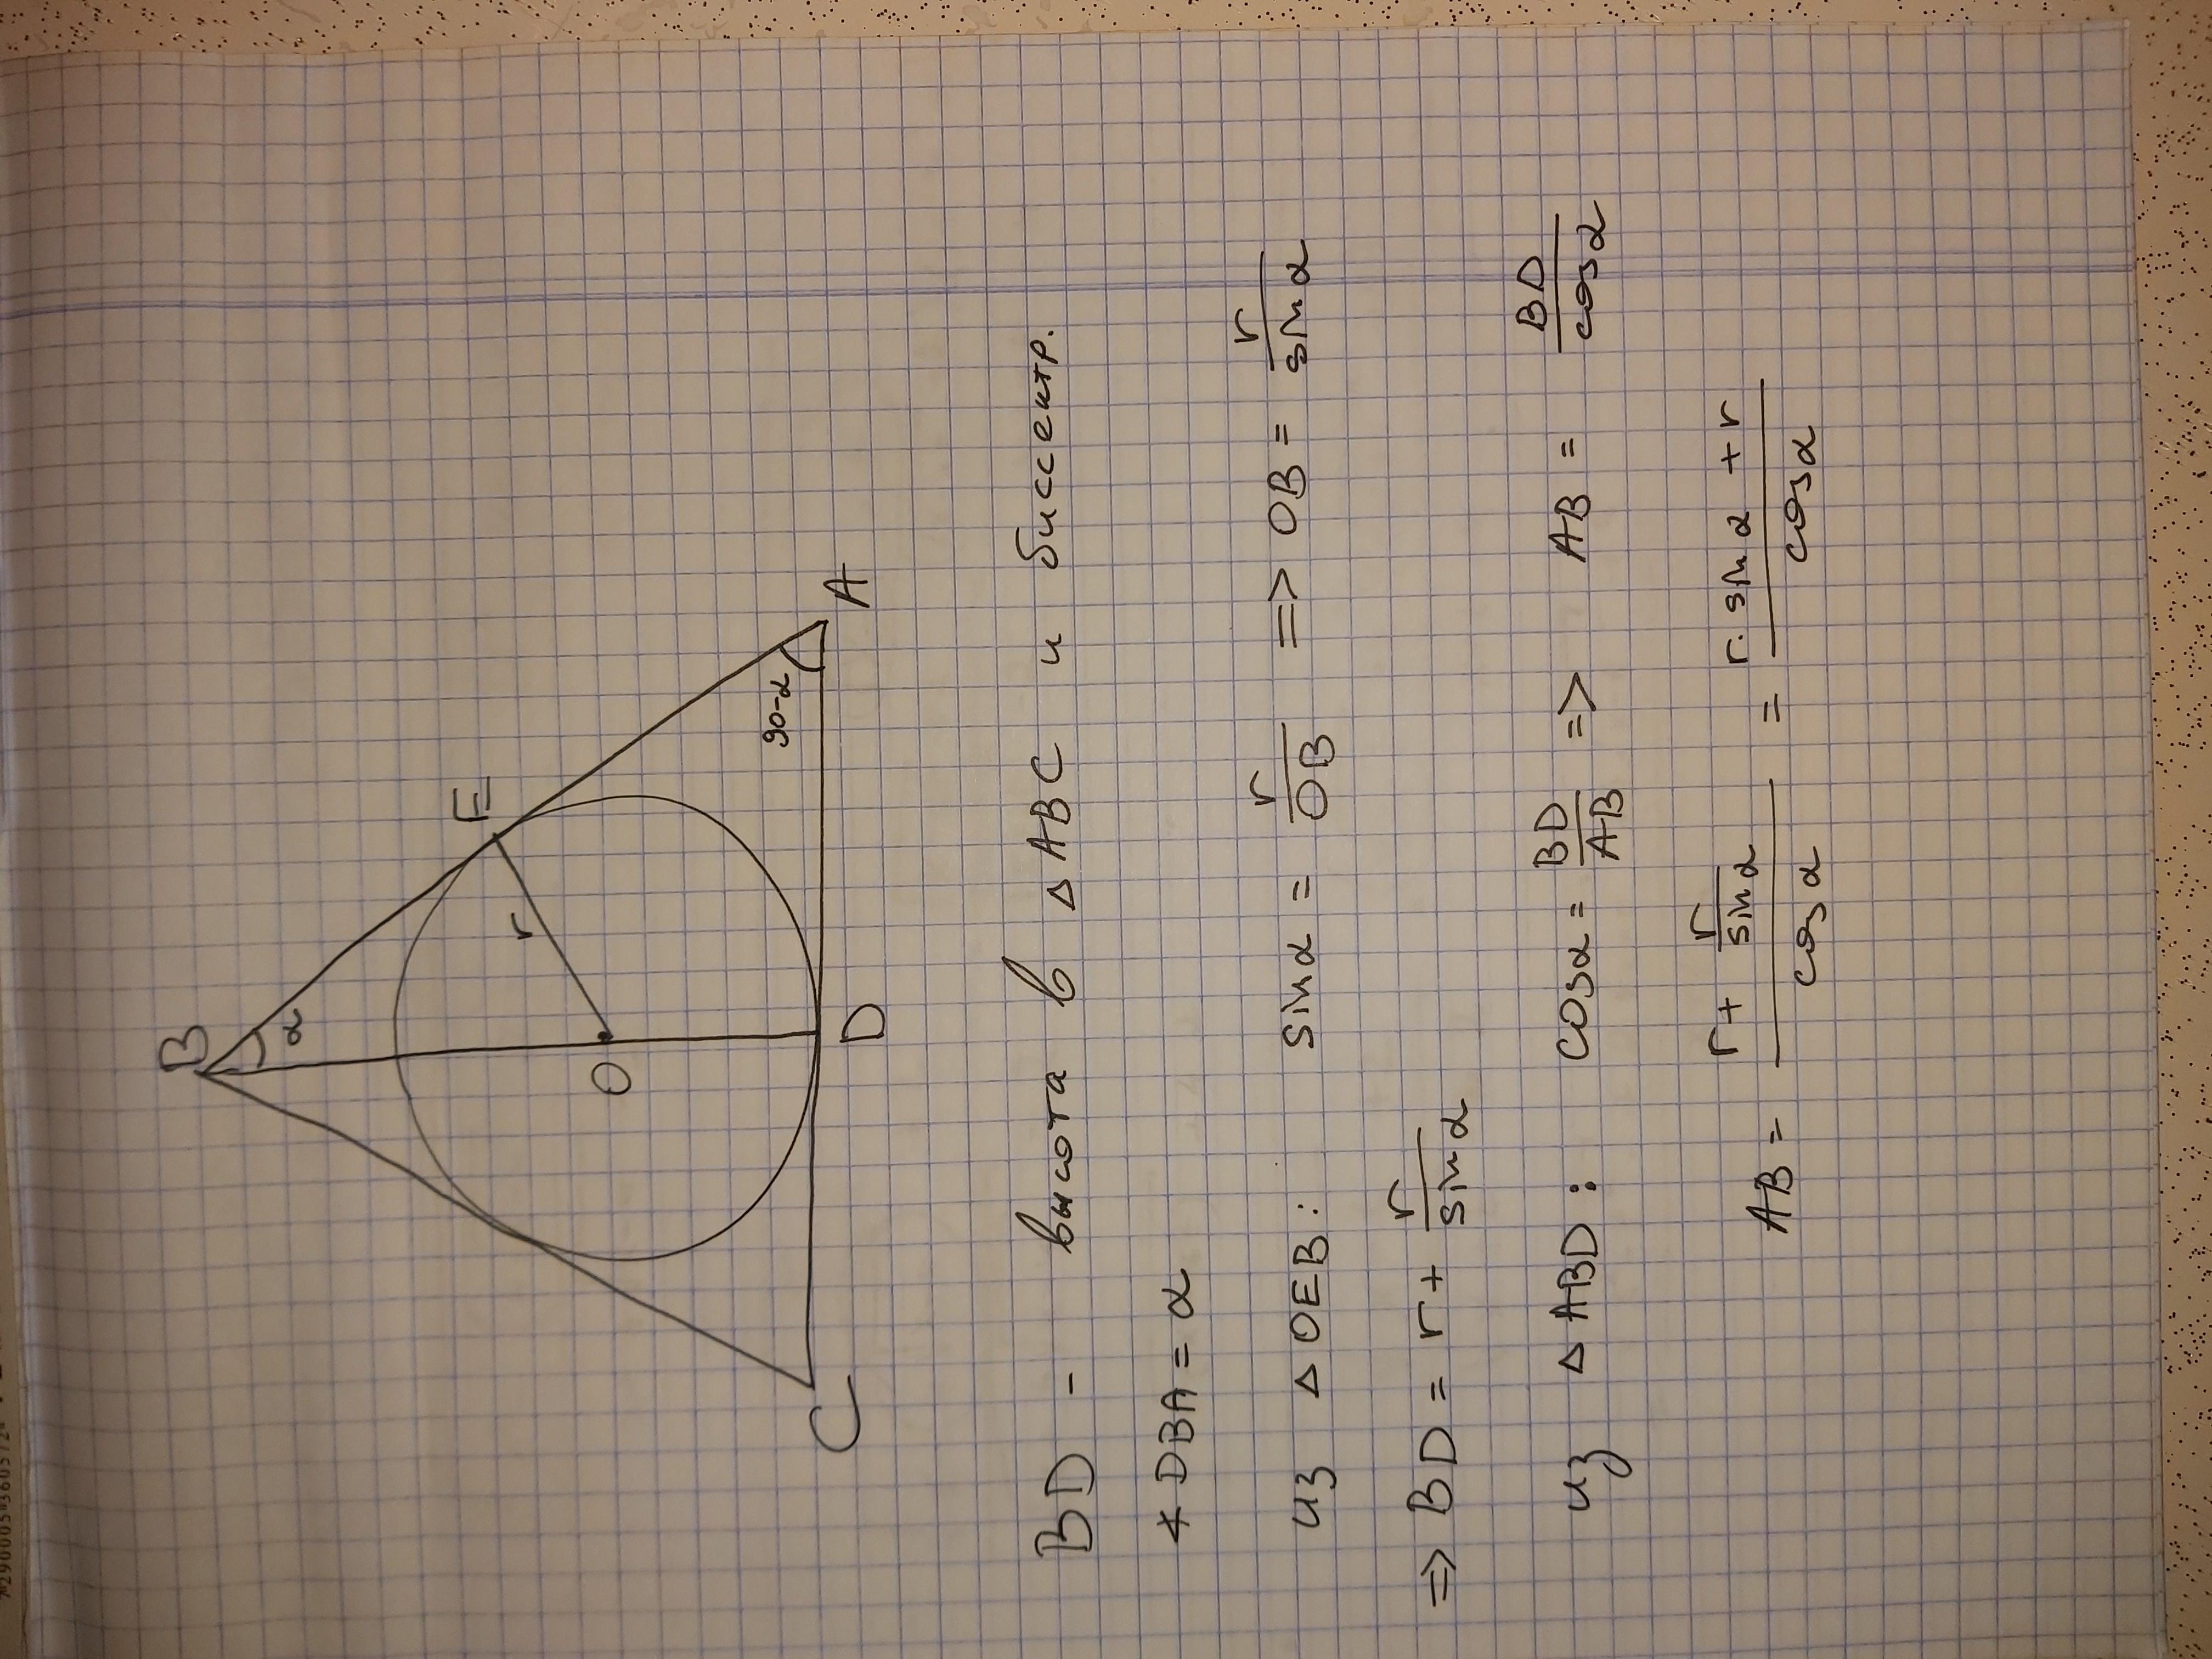 B
α
E
r
O
90-α
C
D
A
BD - высота в △ABC и биссектр.
∡DBA = α
из △OEB: sinα = r/OB => OB = r/sinα
=> BD = r + r/sinα
из △ABD: cosα = BD/AB => AB = BD/cosα
AB = (r + r/sinα)/cosα = (r·sinα + r)/cosα